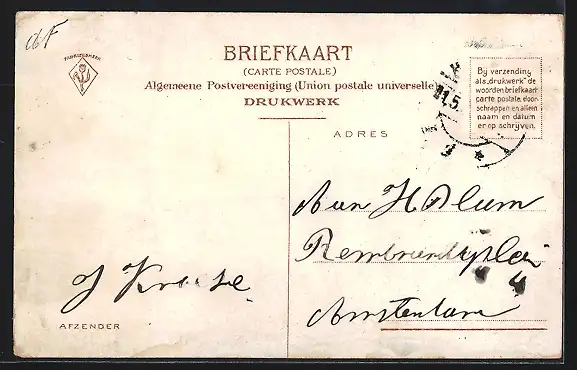 FABRIEKSMERK
BRIEFKAART
(CARTE POSTALE)
Algemeene Postvereeniging (Union postale universelle)
DRUKWERK
By verzending
als „drukwerk" de
woorden briefkaart
carte postale, door-
schrappen en alleen
naam en datum
er op schrijven.
ADRES
Aan H Blum
Rembrandtplein
4
Amsterdam
J
AFZENDER